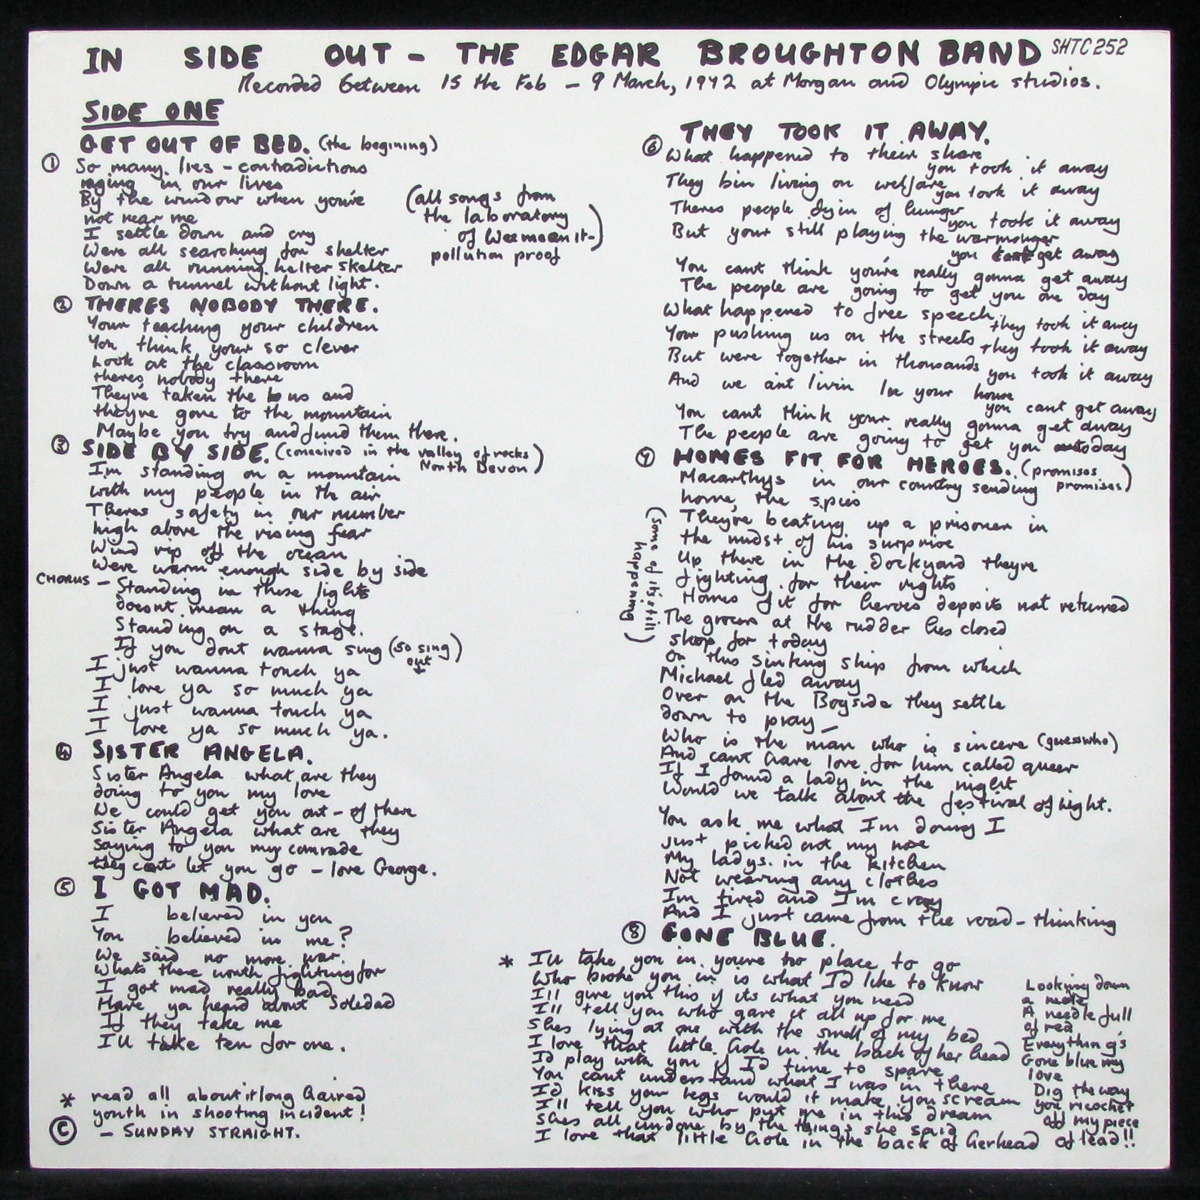 IN SIDE OUT - THE EDGAR BROUGHTON BAND SHTC 252
Recorded between 15 the Feb - 9 March, 1972 at Morgan and Olympic studios.
SIDE ONE
① GET OUT OF BED. (the begining)
So many lies - contradictions
raging in our lives
By the window when you're
not near me
I settle down and cry
Were all searching for shelter
Were all running helter skelter
Down a tunnel without light.
(all songs from
the laboratory
of Wesmeanit-)
pollution proof
② THERES NOBODY THERE.
Your teaching your children
You think your so clever
Look at the classroom
theres nobody there
Theyve taken the bus and
theyve gone to the mountain
Maybe you try and find them there.
③ SIDE BY SIDE. (conceived in the valley of rocks
North Devon)
Im standing on a mountain
with my people in th air
Theres safety in our number
high above the rising fear
Wind rip off the ocean
Were warm enough side by side
CHORUS - Standing in these lights
doesnt mean a thing
Standing on a stage.
If you dont wanna sing (so sing)
out
I just wanna touch ya
I love ya so much ya
I just wanna touch ya
I love ya so much ya.
④ SISTER ANGELA.
Sister Angela what are they
doing to you my love
We could get you out - of there
Sister Angela what are they
saying to you my comrade
they cant let you go - love George.
⑤ I GOT MAD.
I believed in you
You believed in me?
We said no more war.
Whats there worth fighting for
I got mad really bad
Have ya heard about Soledad
If they take me
I'll take ten for one.
* read all about it long haired
youth in shooting incident!
© - SUNDAY STRAIGHT.
⑥ THEY TOOK IT AWAY.
What happened to their share
you took it away
They bin living on welfare
you took it away
Theres people dyin of hunger
you took it away
But your still playing the warmonger
you cant get away
You cant think you're really gonna get away
The people are going to get you one day
What happened to free speech
they took it away
Your pushing us on the streets
they took it away
But were together in thousands
you took it away
And we aint livin In your house
you cant get away
You cant think your really gonna get away
The people are going to get you day
⑦ HOMES FIT FOR HEROES. (promises
promises)
Macarthys in our country sending
home, the spies
Theyre beating up a prisoner in
the midst of his surprise
Up there in the dockyard theyre
fighting for their rights
Homes fit for heroes deposits not returned
(some of its still
happening)
The grocer at the rudder hes closed
shop for today
On this sinking ship from which
Michael fled away
Over on the Bogside they settle
down to pray
Who is the man who is sincere (guesswho)
And cant have love for him called queer
If I found a lady in the night
Would we talk about the festival of light.
You ask me what I'm doing I
just picked out my nose
My ladys in the kitchen
Not wearing any clothes
Im tired and I'm crazy
And I just came from the road - thinking
⑧ GONE BLUE.
* I'll take you in youre no place to go
Who broke you in is what I'd like to know
I'll give you this if its what you need
I'll tell you who gave it all up for me
Shes lying at one with the smell of my bed
I love that little hole in the back of her head
Id play with you if I'd time to spare
You cant understand what I was in there
I'd kiss your legs would it make you scream
I'll tell you who put me in this dream
Shes all undone by the things she said
I love that little hole in the back of her head
Looking down
a
A needle full
of red
Everything's
Gone blue my
love
Dig the way
you ricochet
off my piece
of lead!!